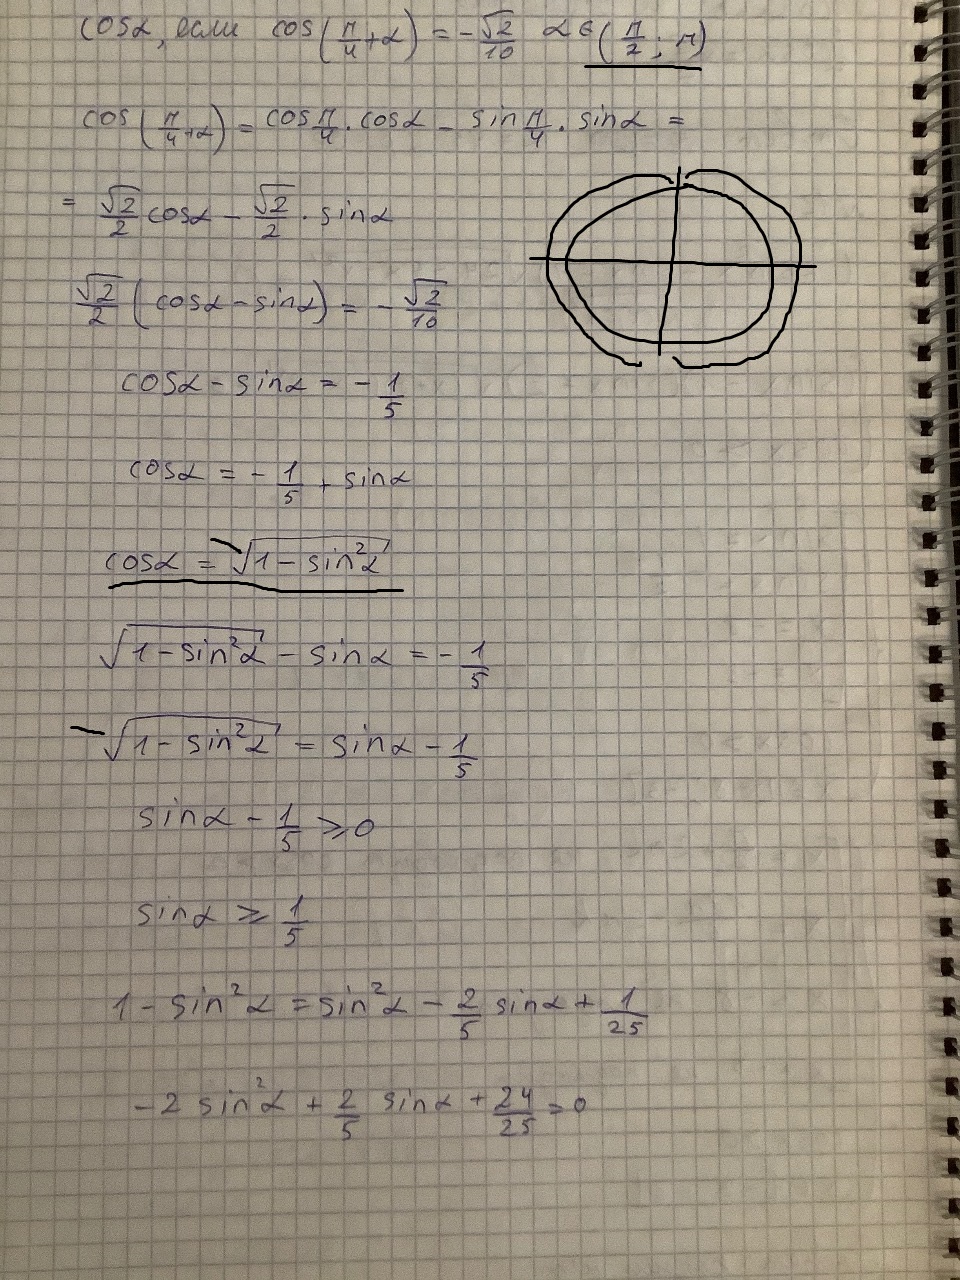 cosα, если cos(π/4+α) = -√2/10 α∈(π/2; π)
cos(π/4+α) = cosπ/4·cosα - sinπ/4·sinα =
= √2/2 cosα - √2/2·sinα
√2/2(cosα-sinα) = -√2/10
cosα-sinα = -1/5
cosα = -1/5 + sinα
cosα = -√(1-sin²α)
√(1-sin²α) - sinα = -1/5
-√(1-sin²α) = sinα - 1/5
sinα - 1/5 ⩾ 0
sinα ⩾ 1/5
1 - sin²α = sin²α - 2/5 sinα + 1/25
-2 sin²α + 2/5 sinα + 24/25 = 0